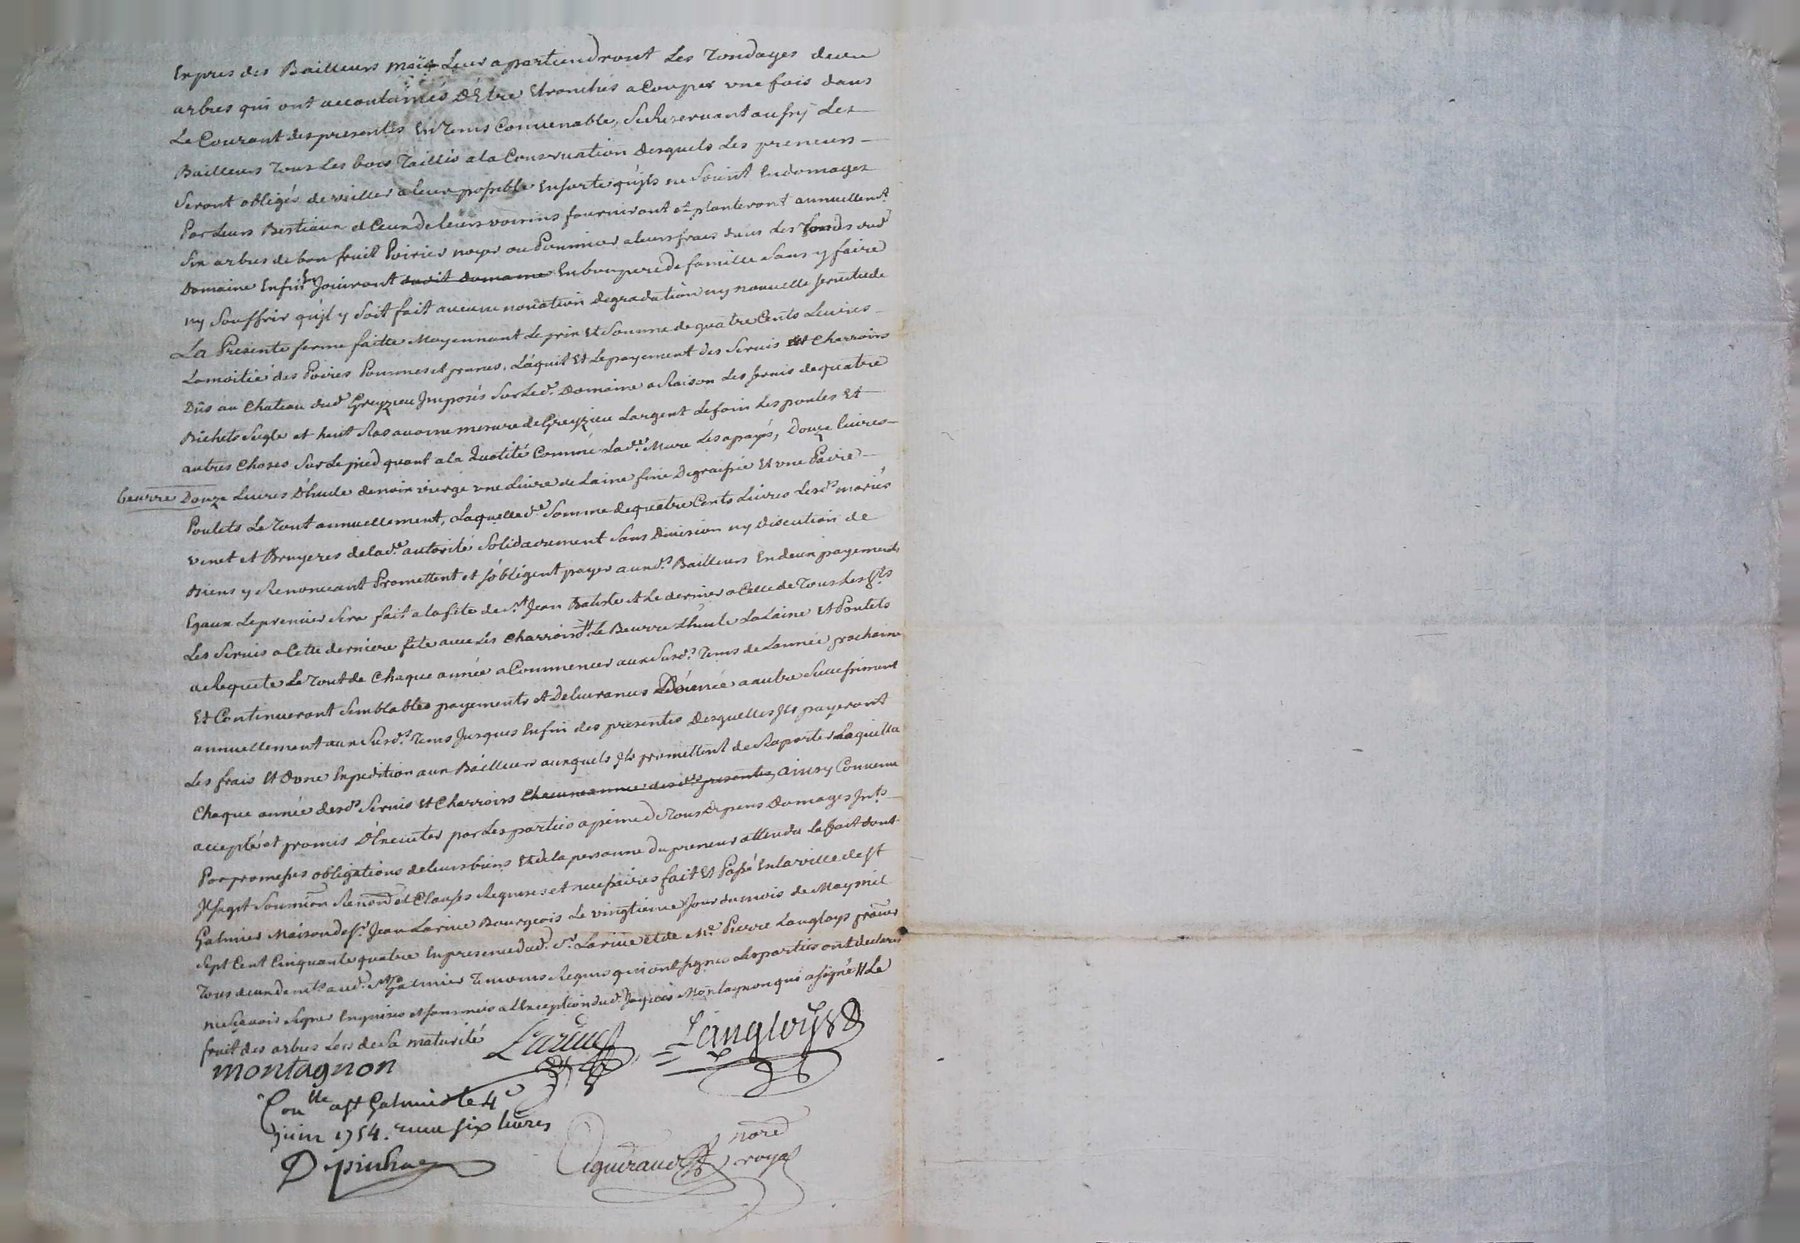 Expres des Bailleurs mais Leur apartiendront Les Tondages de ces
arbres qui ont accoutumés D'Etre Etronchés a Couper une fois dans
Le Courant des presentes En Tems Convenable, Se Reservant aussy Les
Bailleurs Tous Les bois Taillis a la Conservation Desquels Les preneurs
Seront obligés de veiller a leur possible En sorte qu'jls ne Soient Endomagez
Par Leurs Bestiaux et Ceux de leurs voisins fourniront et planteront annuellemt
Six arbres de bon fruit Poirier noyer ou Pommier a leurs frais dans Les fonds dud
Domaine Enfin Jouiront dudit domaine En bon pere de famille Sans y faire
ny Souffrir qu'jl y Soit fait aucune novation degradation ny nouvelle Servitude
La Presente ferme faitte Moyennant Le prix Et Somme de quatre Cents Livres
La moitié des Poires Pommes et prunes, L'aquit Et Le payement des Servis Et Charrois
Dûs au Chateau dud Greyzieu Jmposés Sur Led. Domaine a Raison Les Servis de quatre
Bichets Seigle et huit Ras avoine mesure de Greyzieu L'argent Le foin Les poules Et
autres Choses Sur Le pied quant a la Quotité Comme Lade. Mure Les a payés, Douze livres
beurre Douze Livres D'huile de noix vierge une Livre de Laine fine Degraissée Et une Paire
Poulets Le Tout annuellement, Laquelle de Somme de quatre Cents Livres Lesds mariés
vinet et Bruyeres de lade. autorité Solidairement Sans Division ny Discution de
Biens y Renonceant Promettent et s'obligent payer auxds. Bailleurs En deux payements
Egaux Le premier Sera fait a la fête de St Jean Batiste Et Le dernier a Celle de Tous Les Sts
Les Servis a Cette derniere fête avec Les Charrois Le Beurre L'huile La Laine Et Poulets
a Requete Le Tout de Chaque année a Commencer aux Susds. Tems de L'année prochaine
Et Continueront Semblables payements et Delivrances D'année a autre Successivement
annuellement aux Susds. Tems Jusques En fin des presentes Desquelles Jls payeront
Les frais Et Done Expedition aux Bailleurs auxquels Jls promettent de Raporter La quittce
Chaque année desds Servis Et Charrois Chacune année desdes presentes, ainsy Convenu
accepté et promis D'Executer par Les parties a peine de Tous Depens Domages Jnts
Par promesses obligations de leurs biens Et de la personne du preneur attendu Le fait dont
Jl s'agit Soumion Renon et Clauses Requises et necessaires fait Et Passé En la ville de St
Galmier Maison de Sr. Jean Larive Bourgeois Le vingtieme Jour du mois de May mil
Sept Cent Cinquante quatre En presence dud. Sr. Larive et de Me Pierre Langloys
Tous deux demts aud. St Galmier Temoins Requis qui ont signé Les parties ont declaré
ne Sçavoir Signer Enquises et Sommées a L'Exception dud. Jaques Montagnon qui a signé Et Le
fruit des arbres Lors de Sa maturité
Larive Langloys
montagnon
Conlle a St Galmier le 4e
juin 1754. reçu six livres
Depinhac
Aguiraud nore
royal